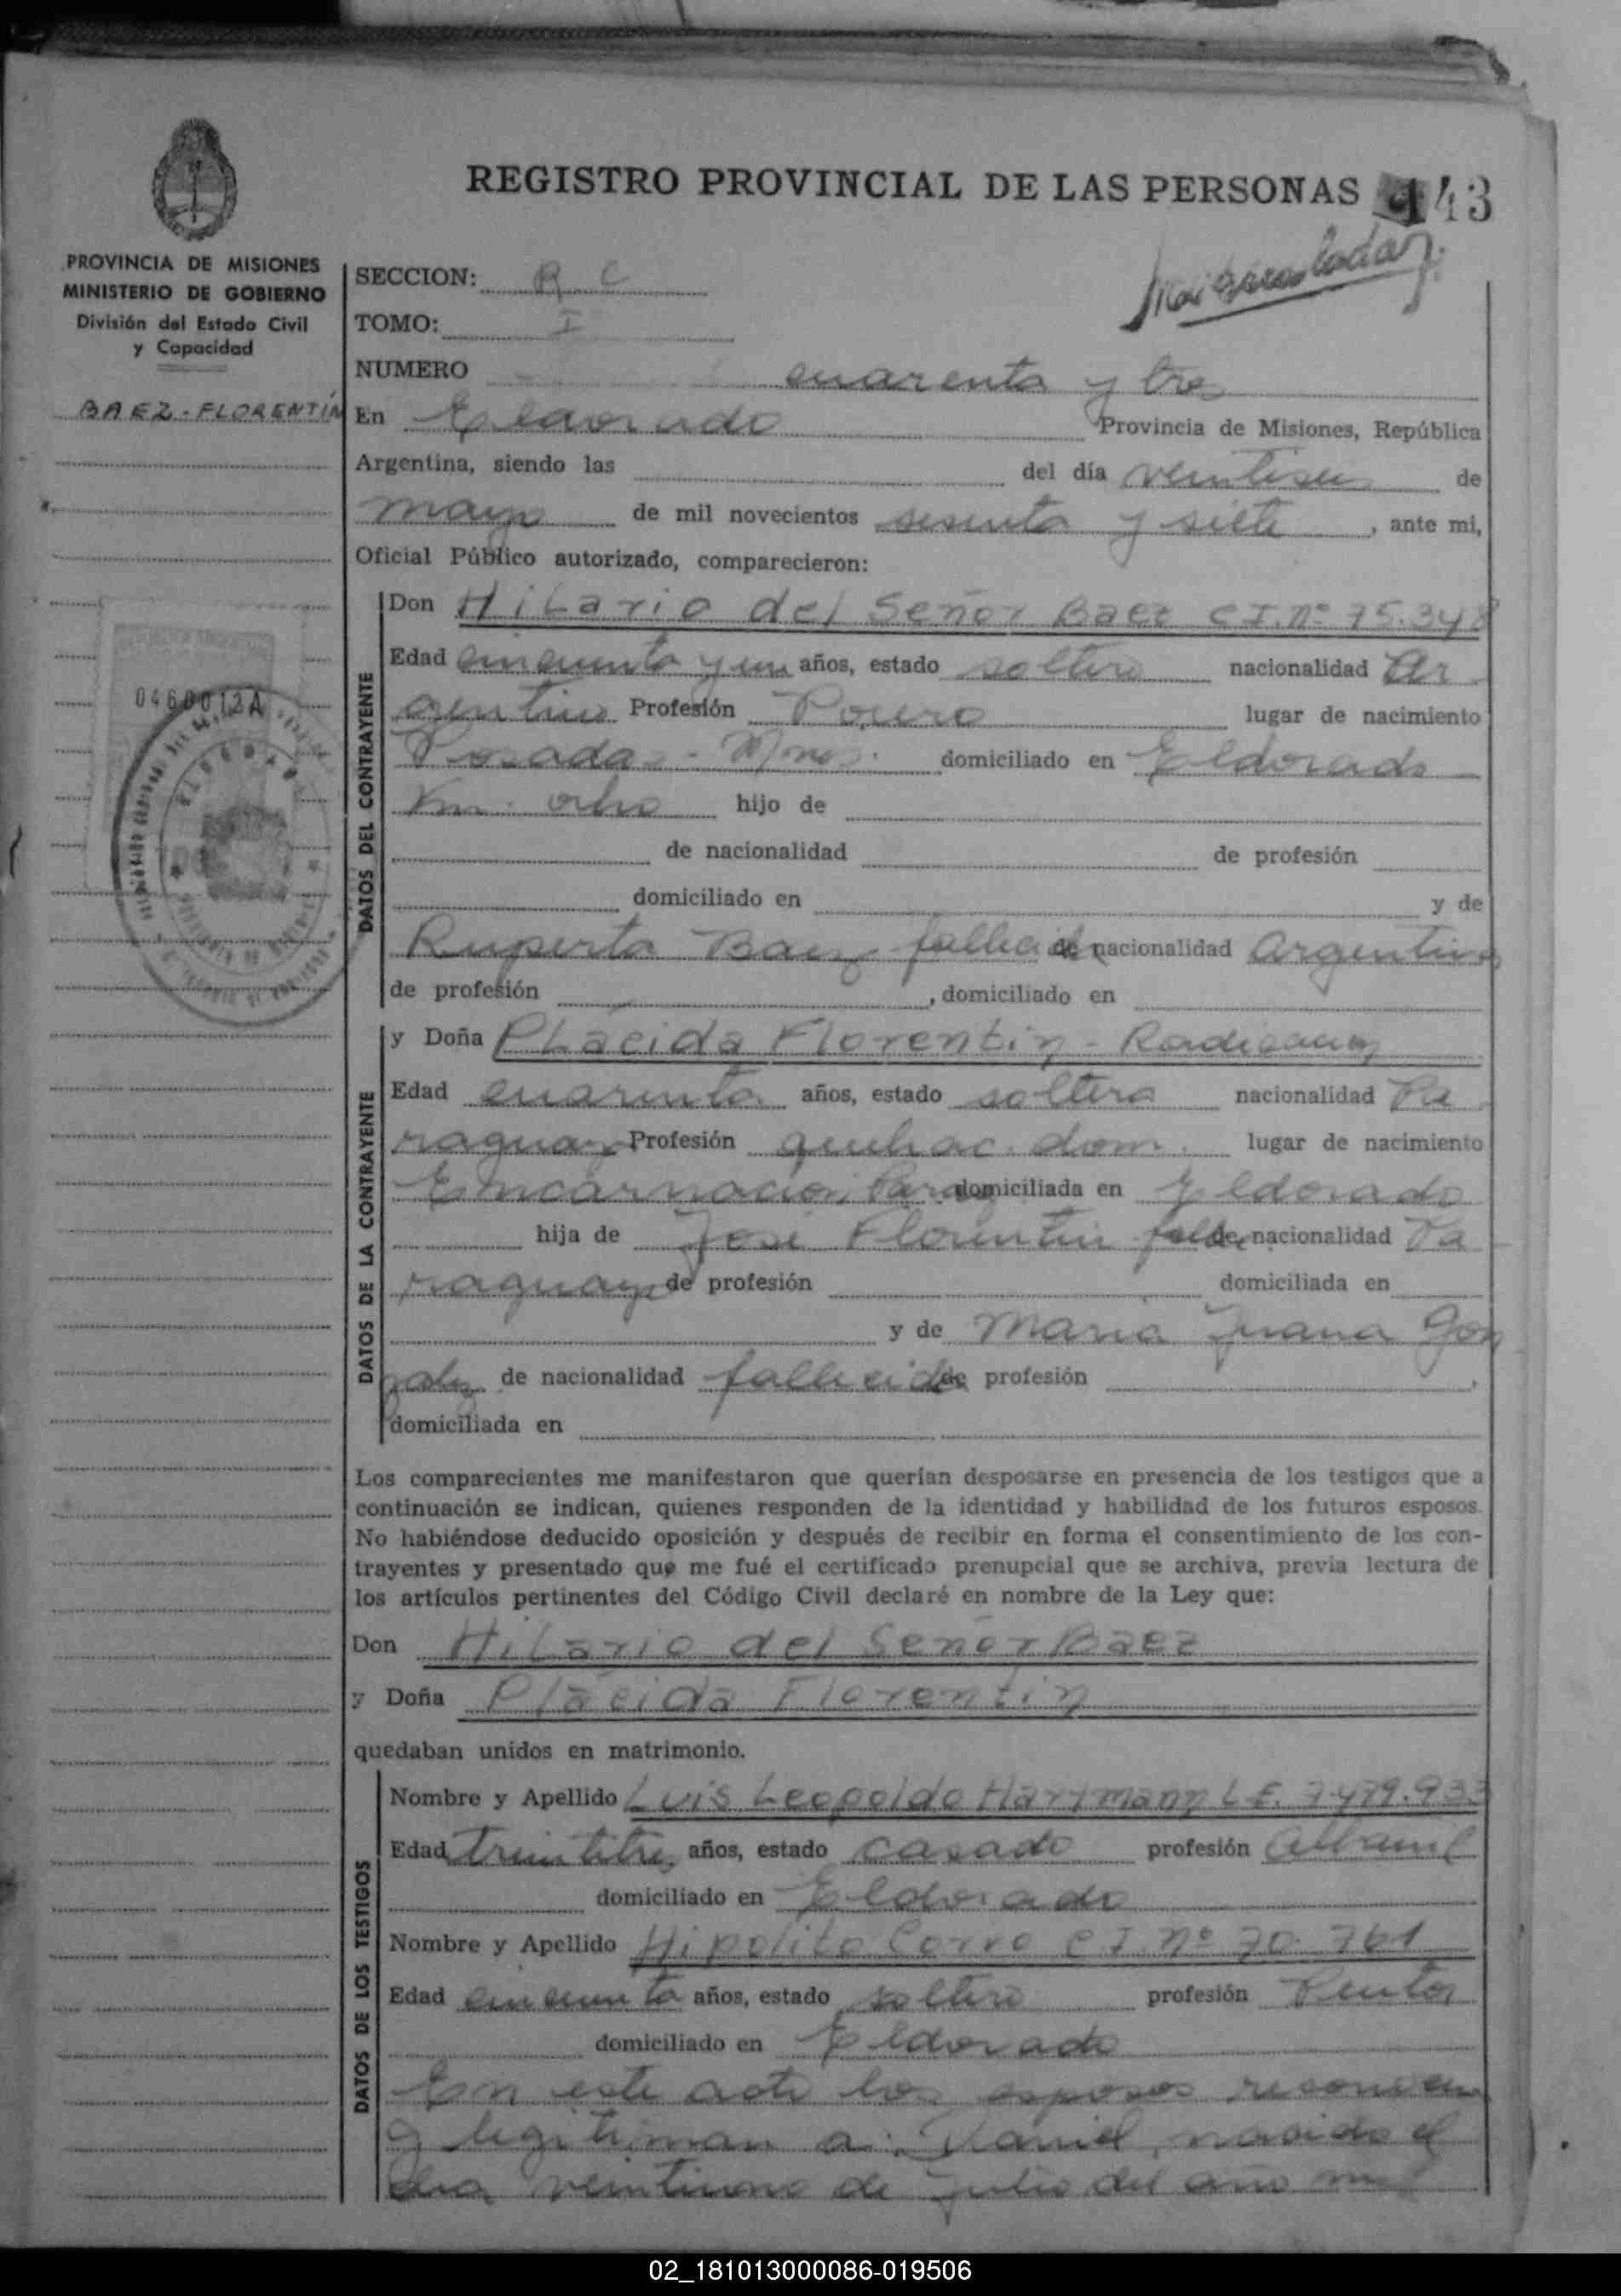 REGISTRO PROVINCIAL DE LAS PERSONAS 43
PROVINCIA DE MISIONES
MINISTERIO DE GOBIERNO
División del Estado Civil
y Capacidad
BAEZ - FLORENTÍN
0460012A
SECCION: R C
TOMO: I
NUMERO cuarenta y tres
En Eldorado Provincia de Misiones, República
Argentina, siendo las del día veintiseis de
mayo de mil novecientos sesenta y siete, ante mi,
Oficial Público autorizado, comparecieron:
DATOS DEL CONTRAYENTE
Don Hilario del Señor Baez C I. nº 75.348
Edad cincuenta y un años, estado soltero nacionalidad Ar
gentino Profesión lugar de nacimiento
Posadas - Mnes. domiciliado en Eldorado
Km. ocho hijo de
de nacionalidad de profesión
domiciliado en y de
Ruperta Baez fallecida de nacionalidad argentina
de profesión , domiciliado en
DATOS DE LA CONTRAYENTE
y Doña Placida Florentin - Radicacion
Edad cuarenta años, estado soltera nacionalidad Pa
raguay Profesión quehac. dom. lugar de nacimiento
Encarnacion Parag domiciliada en Eldorado
hija de José Florentin falle de nacionalidad Pa
raguay de profesión domiciliada en
y de Maria Juana Gon
zalez de nacionalidad fallecida de profesión ,
domiciliada en
Los comparecientes me manifestaron que querían desposarse en presencia de los testigos que a
continuación se indican, quienes responden de la identidad y habilidad de los futuros esposos.
No habiéndose deducido oposición y después de recibir en forma el consentimiento de los con-
trayentes y presentado que me fué el certificado prenupcial que se archiva, previa lectura de
los artículos pertinentes del Código Civil declaré en nombre de la Ley que:
Don Hilario del Señor Baez
y Doña Placida Florentin
quedaban unidos en matrimonio.
DATOS DE LOS TESTIGOS
Nombre y Apellido Luis Leopoldo Hartmann L E. 7.479.933
Edad treintitres años, estado casado profesión albanil
domiciliado en Eldorado
Nombre y Apellido Hipolito Corro C I. nº 70.761
Edad cincuenta años, estado soltero profesión Pintor
domiciliado en Eldorado
En este acto los esposos reconocen
y legitiman a: Daniel, nacido el
dia veintiuno de julio del año mil
02_181013000086-019506